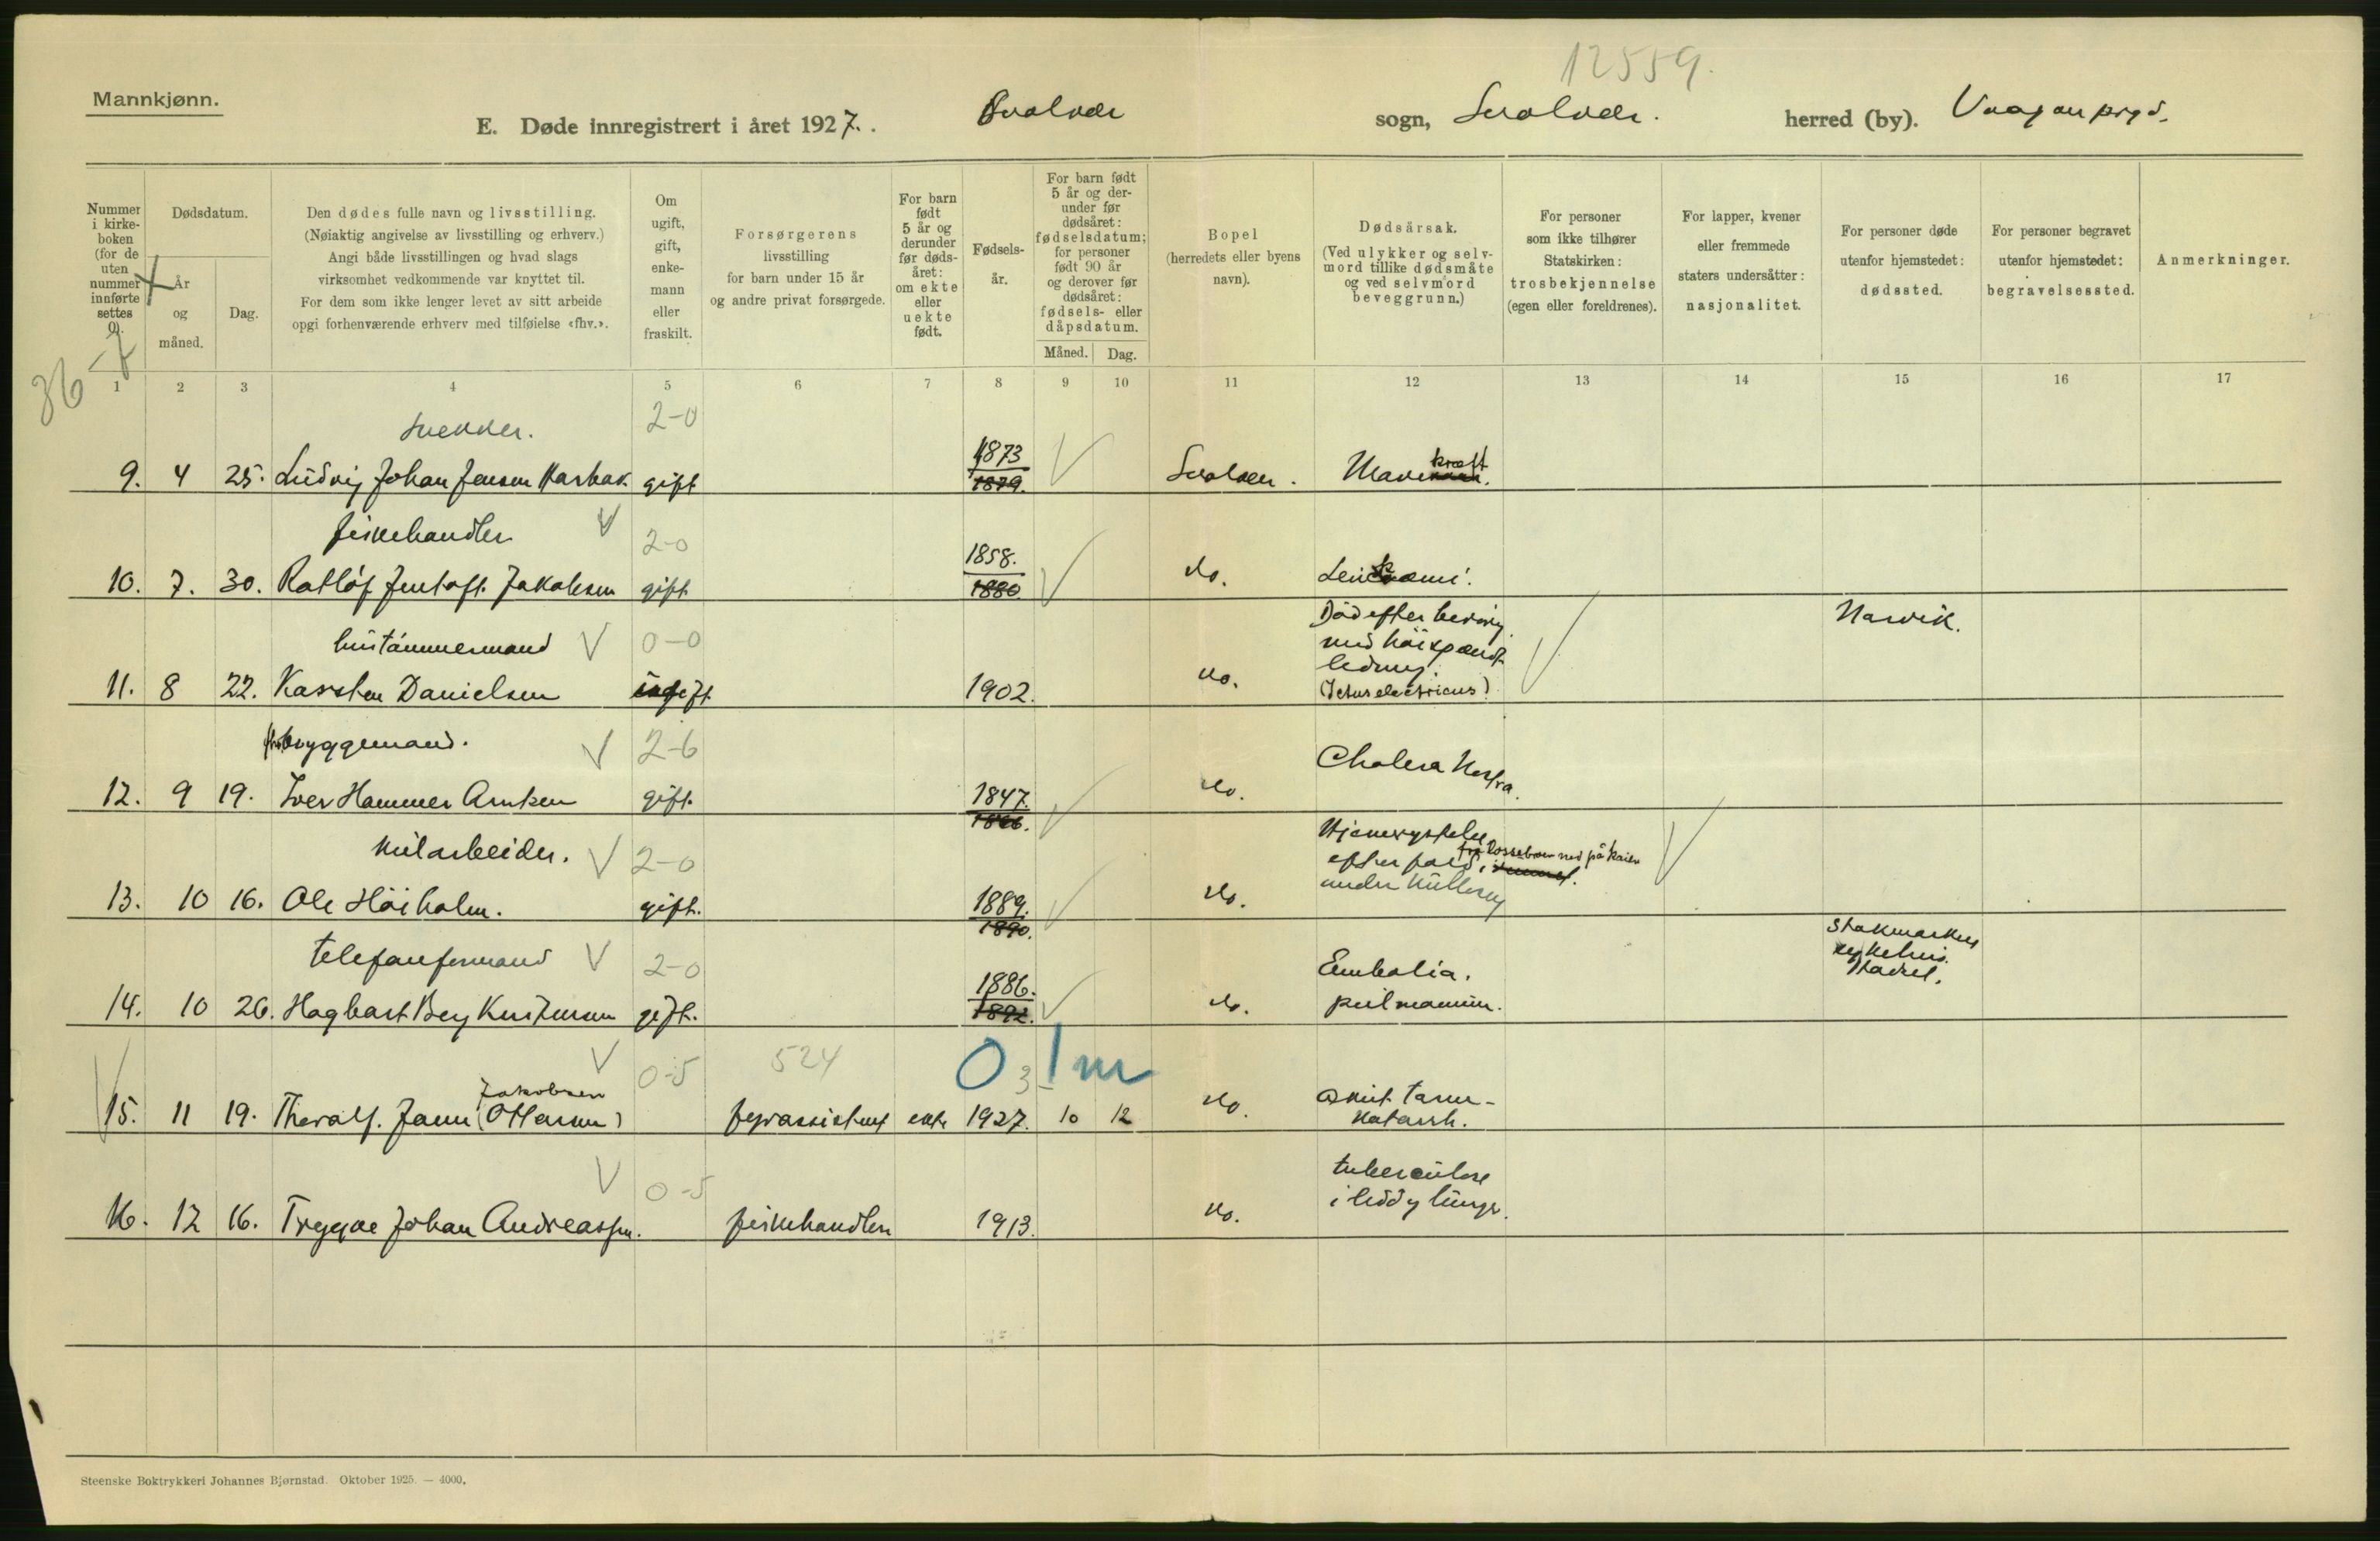 12559.
Mannkjønn.
E. Døde innregistrert i året 1927. Svolvær sogn, Svolvær. herred (by). Vaagan prgd.
Nummer i kirke- boken (for de uten nummer innførte settes 0).
Dødsdatum.
År og måned.
Dag.
Den dødes fulle navn og livsstilling.
(Nøiaktig angivelse av livsstilling og erhverv.)
Angi både livsstillingen og hvad slags
virksomhet vedkommende var knyttet til.
For dem som ikke lenger levet av sitt arbeide
opgi forhenværende erhverv med tilføielse «fhv.».
Om ugift, gift, enke- mann eller fraskilt.
Forsørgerens
livsstilling
for barn under 15 år
og andre privat forsørgede.
For barn født 5 år og derunder før døds- året: om ekte eller uekte født.
Fødsels- år.
For barn født 5 år og der- under før dødsåret: fødselsdatum; for personer født 90 år og derover før dødsåret: fødsels- eller dåpsdatum.
Måned. Dag.
Bopel
(herredets eller byens navn).
Dødsårsak.
(Ved ulykker og selv- mord tillike dødsmåte og ved selvmord beveggrunn.)
For personer som ikke tilhører Statskirken: trosbekjennelse (egen eller foreldrenes).
For lapper, kvener eller fremmede staters undersåtter: nasjonalitet.
For personer døde utenfor hjemstedet: dødssted.
For personer begravet utenfor hjemstedet: begravelsessted.
Anmerkninger.
36
1 2 3 4 5 6 7 8 9 10 11 12 13 14 15 16 17
snekker. 2-0
9. 4 25. Ludvig Johan Jensen gift 1873 1879. Svolvær. Mavekræft
fiskehandler 2-0
10. 7. 30. Jentoft Jakobsen gift 1858. 1880 do. Leukæmi.
hustømmermand 0-0
11. 8 22. Karsten Danielsen 1902. do. Död efter beröring med höispændt ledning (Ictus electricus) Narvik.
bryggemand. 2-6
12. 9 19. Iver Hammer Arntzen gift. 1847. do. Cholera Nostra.
kularbeider. 2-0
13. 10 16. Ole Höiholm. gift. 1889. 1890. do. Hjernerystelse efter fald fra ned på kaien under kullosning
telefonformand 2-0
14. 10 26. Hagbart Berg gift. 1886. 1892. do. Embolia. pulmonum. Stokmarknes sykehus. Hadsel.
0-5 524 0 3 1 m
15. 11 19. Jakobsen (Ottesen) fyrassistent ekte 1927. 10 12 do. akut tarm- katarrh.
0-5
16. 12 16. Trygve Johan Andreassen. fiskehandler 1913. do. tuberculose i ledd og lunger.
Steenske Boktrykkeri Johannes Bjørnstad. Oktober 1925. — 4000.